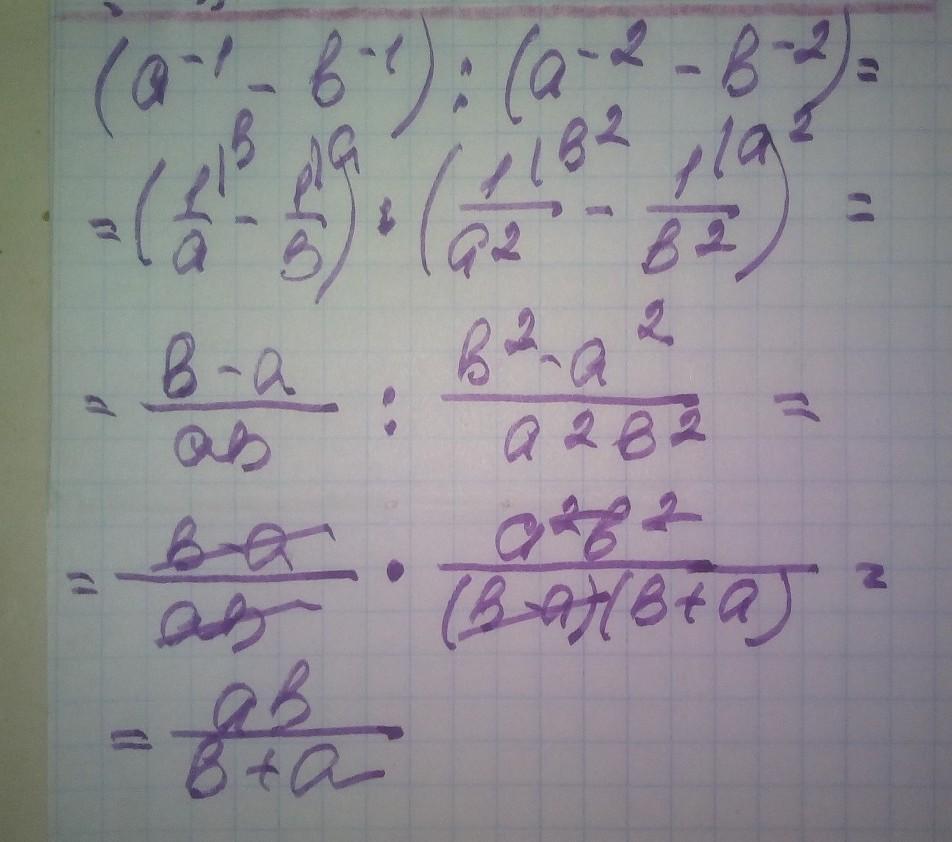 (a⁻¹ - b⁻¹) : (a⁻² - b⁻²) =
= (1/a |b - 1/b |a) : (1/a² |b² - 1/b² |a²) =
= (b - a)/(ab) : (b² - a²)/(a²b²) =
= (b - a)/(ab) • (a²b²)/((b - a)(b + a)) =
= (ab)/(b + a)